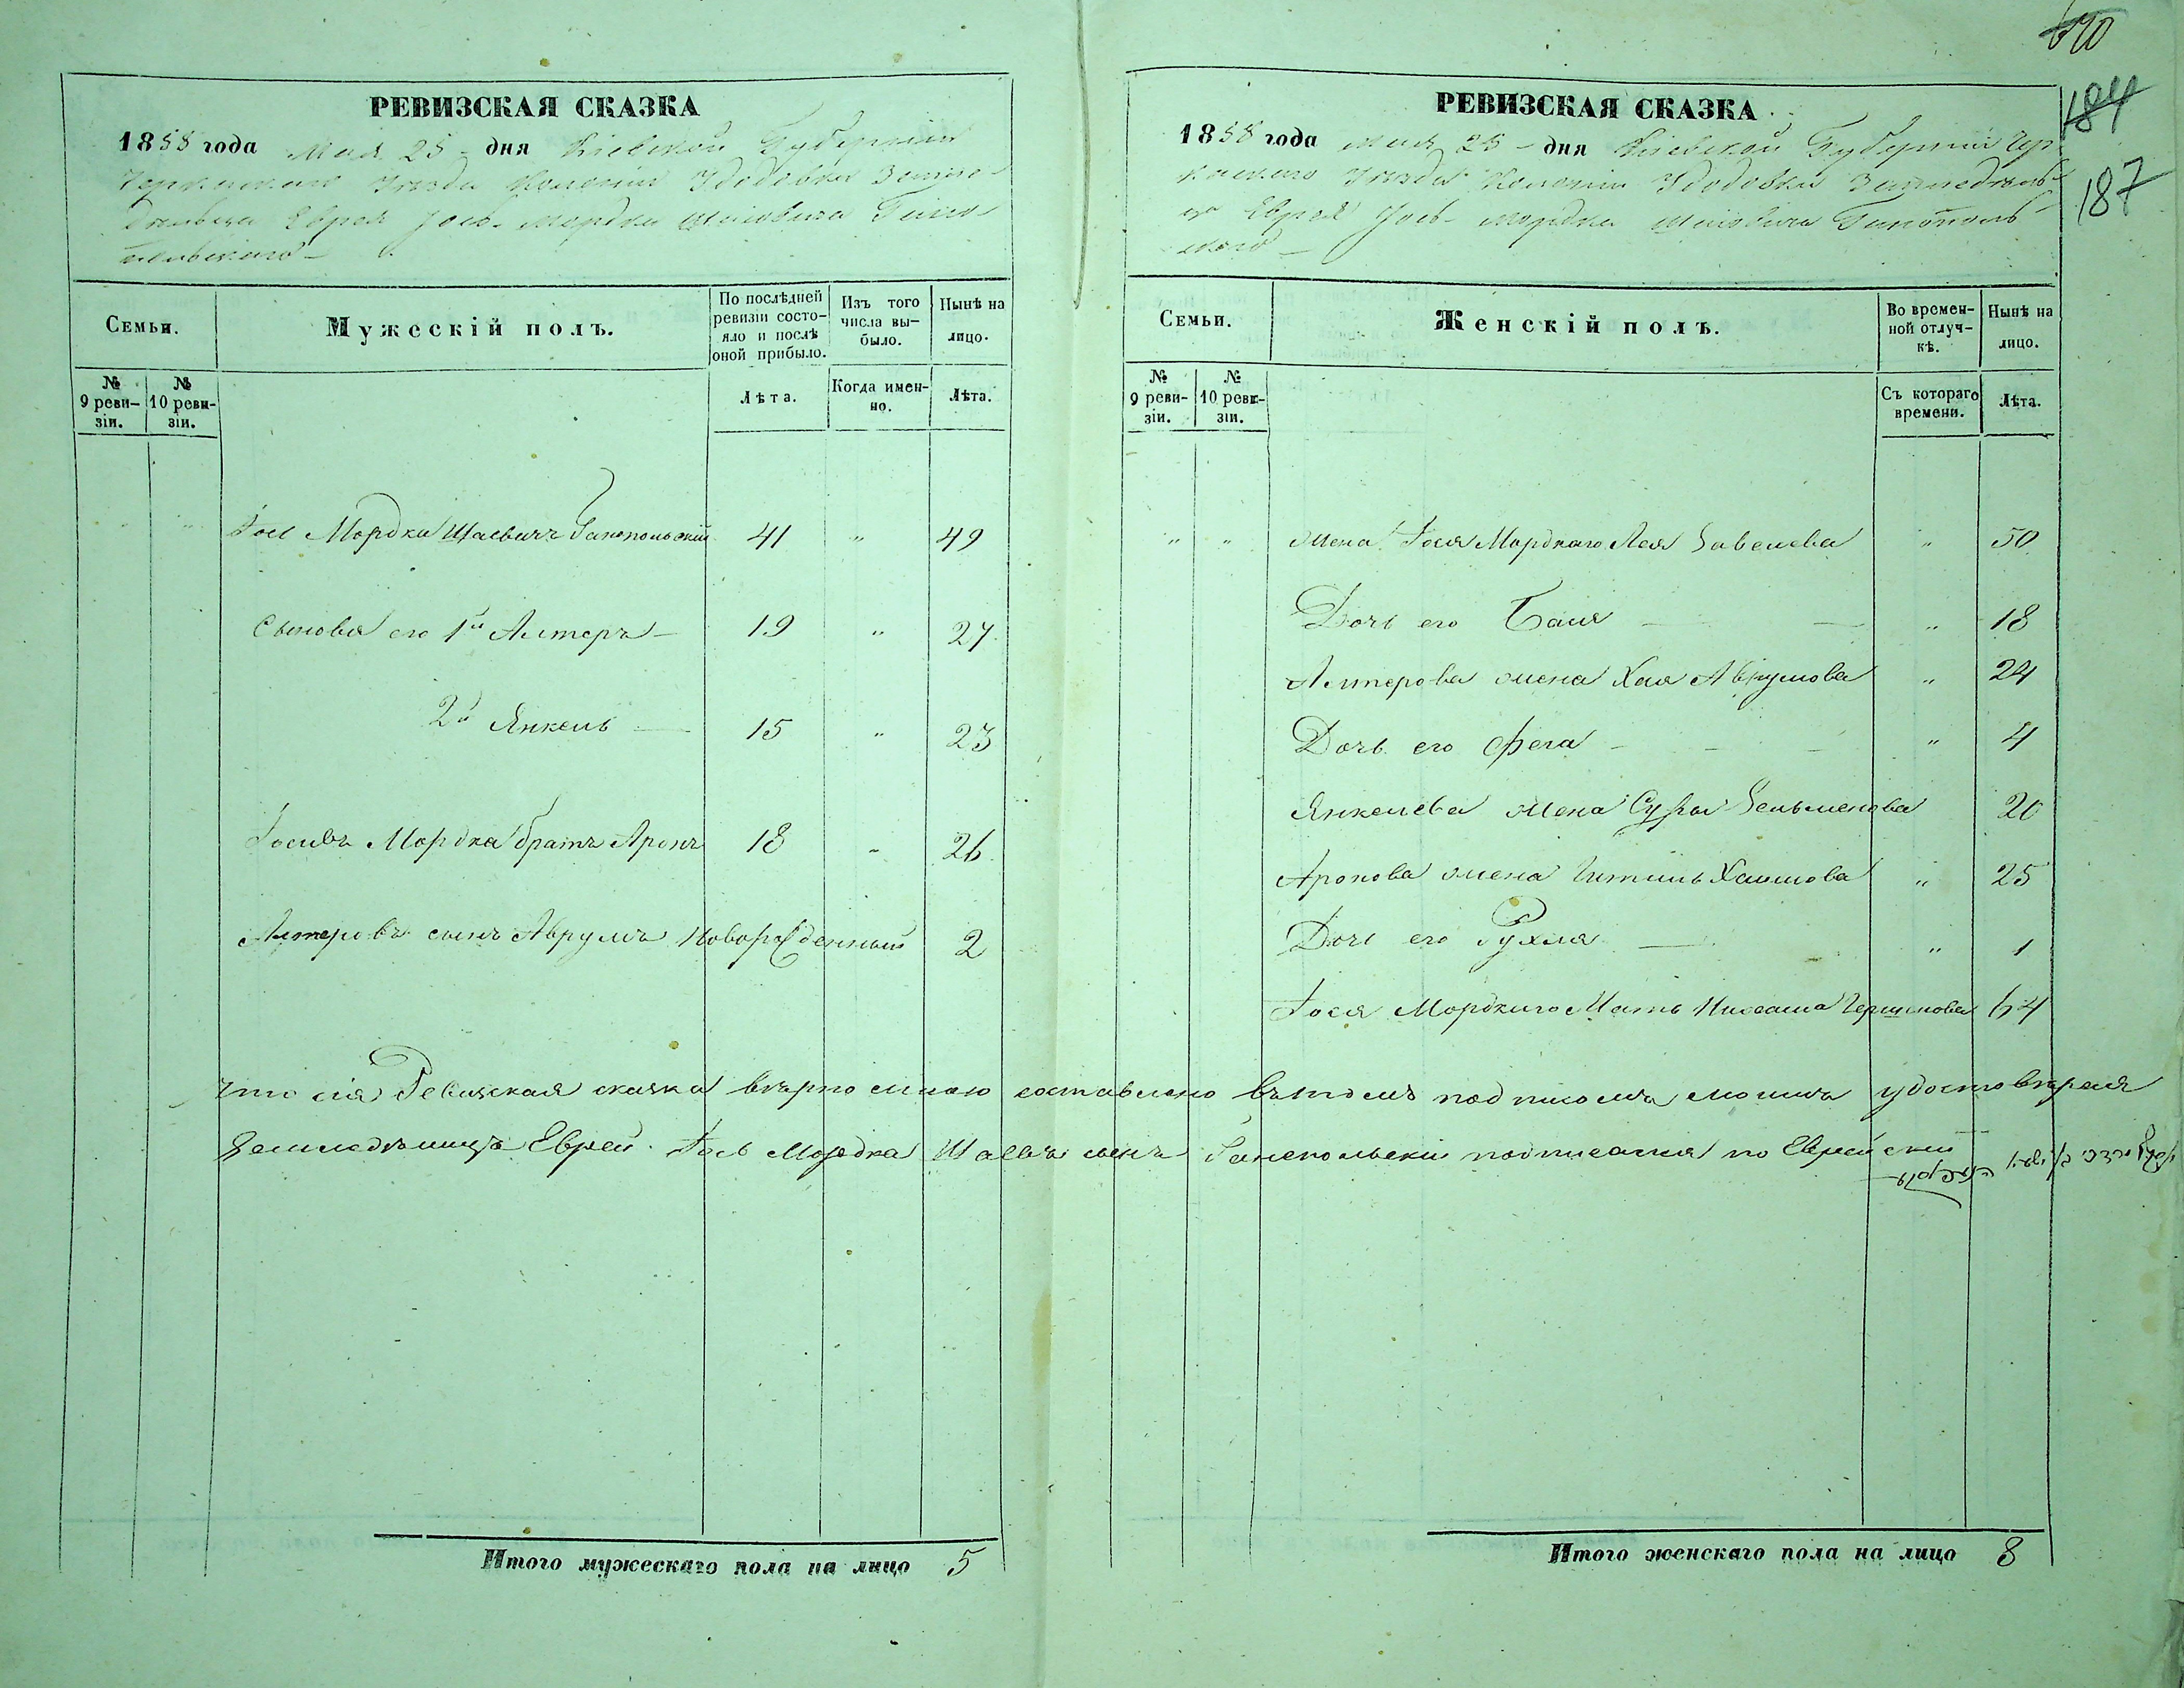 190
184
187
РЕВИЗСКАЯ СКАЗКА
1858 года Мая 25 - дня Кіевской Губерніи
Черкаскаго Уѣзда Колоніи Удодовки Земле-
дѣльца Еврея Іось-Мордки Шаіовича Гано-
польскаго -
Семьи.
Мужескій полъ.
По послѣдней ревизіи состо-
яло и послѣ оной прибыло.
Изъ того числа вы-
было.
Нынѣ на лицо.
№ 9 реви-
зіи.
№ 10 реви-
зіи.
Лѣта.
Когда имен-
но.
Лѣта.
" " Іось Мордка Шаевичъ Ганопольскій 41 " 49
Сыновья его 1й Алтеръ - 19 " 27
2й Янкель - 15 " 23
Іосивъ Мордка братъ Аронъ 18 " 26
Алтеровъ сынъ Аврумъ новорожденный 2
РЕВИЗСКАЯ СКАЗКА
1858 года Мая 25 - дня Кіевской Губерніи Чер-
каскаго Уѣзда Колоніи Удодовки Земледѣль-
ца Еврея Іось-Мордка Шаіовича Ганополь-
скаго -
Семьи.
Женскій полъ.
Во времен-
ной отлуч-
кѣ.
Нынѣ на лицо.
№ 9 реви-
зіи.
№ 10 реви-
зіи.
Съ котораго времени.
Лѣта.
" " Жена Іося Мордкаго Лея " 50
Дочь его Бася - - " 18
Алтерова жена Хая Аврумова " 24
Дочь его Фега - - - " 4
Янкелева жена Сура Зельменова 20
Аронова жена Хаимова " 25
Дочь его Рухля - " 1
Іося Мордкаго Мать Гершкова 64
Что сія Ревизская сказка вѣрно мною составлено въ томъ подписомъ моимъ удостовѣряя
Земледѣлицъ Еврей Іось Мордка Шаевъ сынъ Ганопольскій подписался по Еврейски
Итого мужескаго пола на лицо 5
Итого женскаго пола на лицо 8